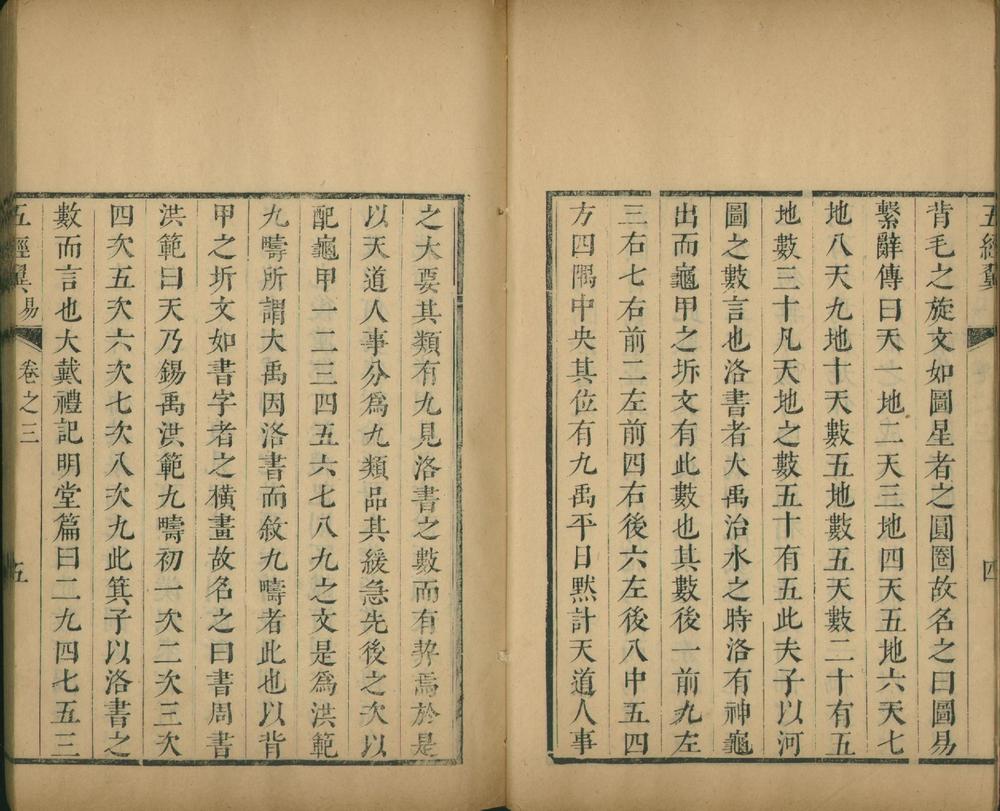 五經翼
四
背毛之旋文如圖星者之圓圈故名之曰圖易
繫辭傳曰天一地二天三地四天五地六天七
地八天九地十天數五地數五天數二十有五
地數三十凡天地之數五十有五此夫子以河
圖之數言也洛書者大禹治水之時洛有神龜
出而龜甲之坼文有此數也其數後一前九左
三右七右前二左前四右後六左後八中五四
方四隅中央其位有九禹平日默計天道人事
之大要其類有九見洛書之數而有契焉於是
以天道人事分爲九類品其緩急先後之次以
配龜甲一二三四五六七八九之文是爲洪範
九疇所謂大禹因洛書而敘九疇者此也以背
甲之坼文如書字者之橫畫故名之曰書周書
洪範曰天乃錫禹洪範九疇初一次二次三次
四次五次六次七次八次九此箕子以洛書之
數而言也大戴禮記明堂篇曰二九四七五三
五經翼 易 卷之三 五